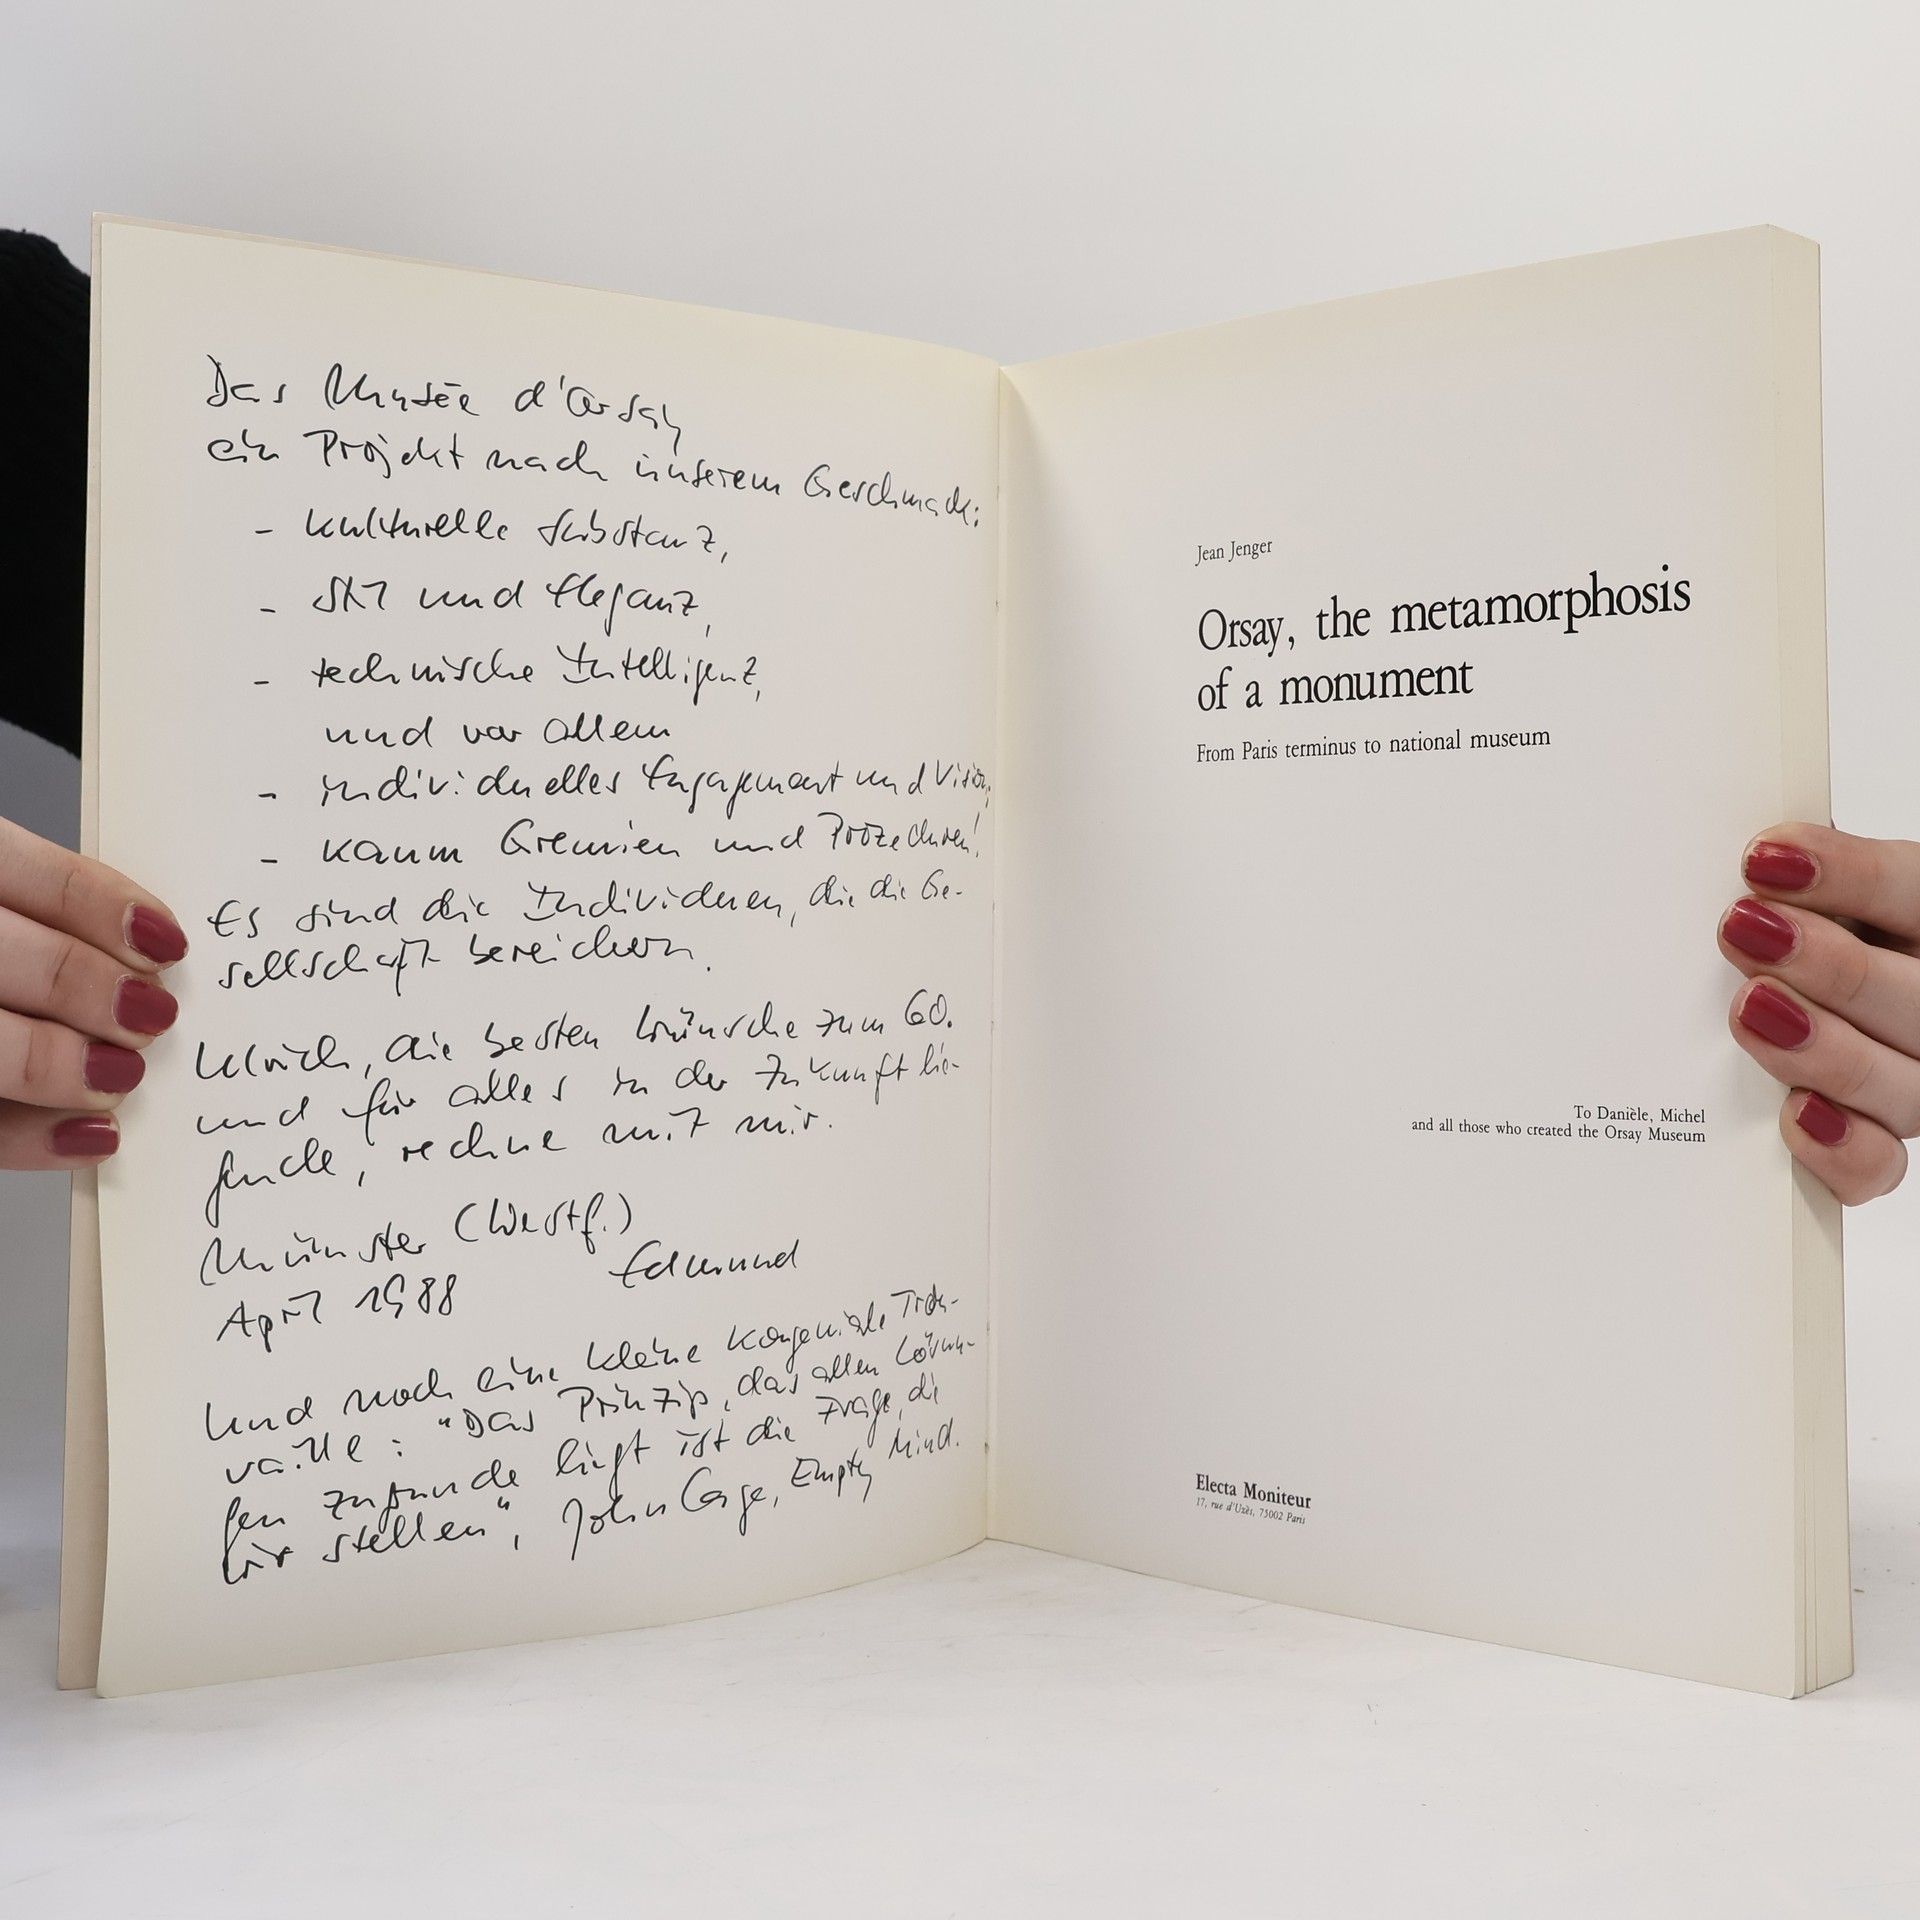 Das Musée d'Orsay
ein Projekt nach unserem Geschmack:
- kulturelle Substanz,
- Stil und Eleganz,
- technische Intelligenz,
und vor allem
- individuelles Engagement und Vision;
- kaum Gremien und Prozeduren!
Es sind die Individuen, die die Ge-
sellschaft bereichern.
Ulrich, die besten Wünsche zum 60.
und für alles in der Zukunft lie-
gende, rechne mit mir.
Münster (Westf.)
April 1988 Edmund
Und noch eine kleine kongeniale Trou-
vaille: "Das Prinzip, das allen Lösun-
gen zugrunde liegt ist die Frage, die
wir stellen", John Cage, Empty Mind.
Jean Jenger
Orsay, the metamorphosis
of a monument
From Paris terminus to national museum
To Danièle, Michel
and all those who created the Orsay Museum
Electa Moniteur
17, rue d'Uzès, 75002 Paris